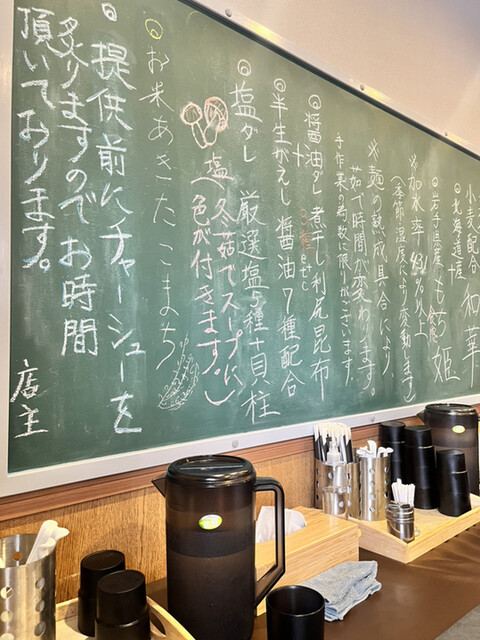 小麦配合
◎北海道産 和華
◎岩手県産 もち姫
※加水率43%以上
(季節温度により変動します)
※麺の熟成具合により
茹で時間が変わります。
手作業の為、数に限りがございます。
◎醤油ダレ 煮干し 利尻昆布
etc
+
◎半生がえし 醤油7種配合
◎塩ダレ 厳選塩5種+貝柱
塩(冬茹でスープに
色が付きます。)
◎お米あきたこまち
◎提供前にチャーシューを
炙りますのでお時間
頂いております。
店主